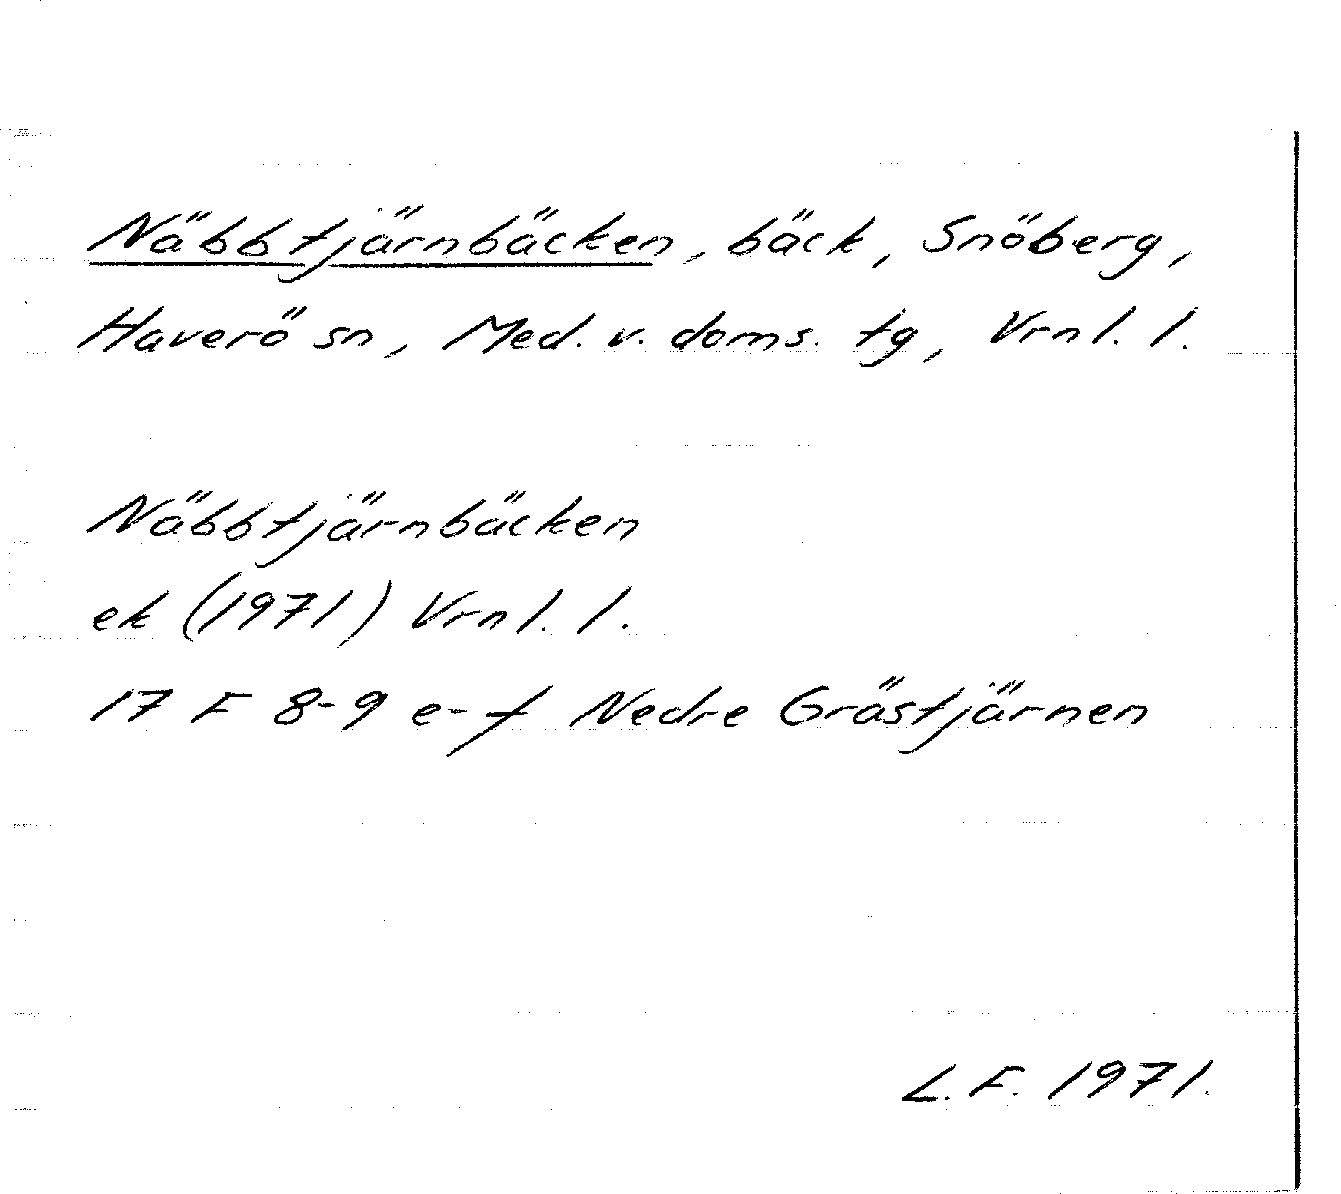 Näbbtjärnbäcken, bäck, Snöberg,
Haverö sn, Med. v. doms. tg, Vrnl. l.
Näbbtjärnbäcken
ek (1971) Vrnl. l.
17 F 8-9 e-f Nedre Grästjärnen
L. F. 1971.